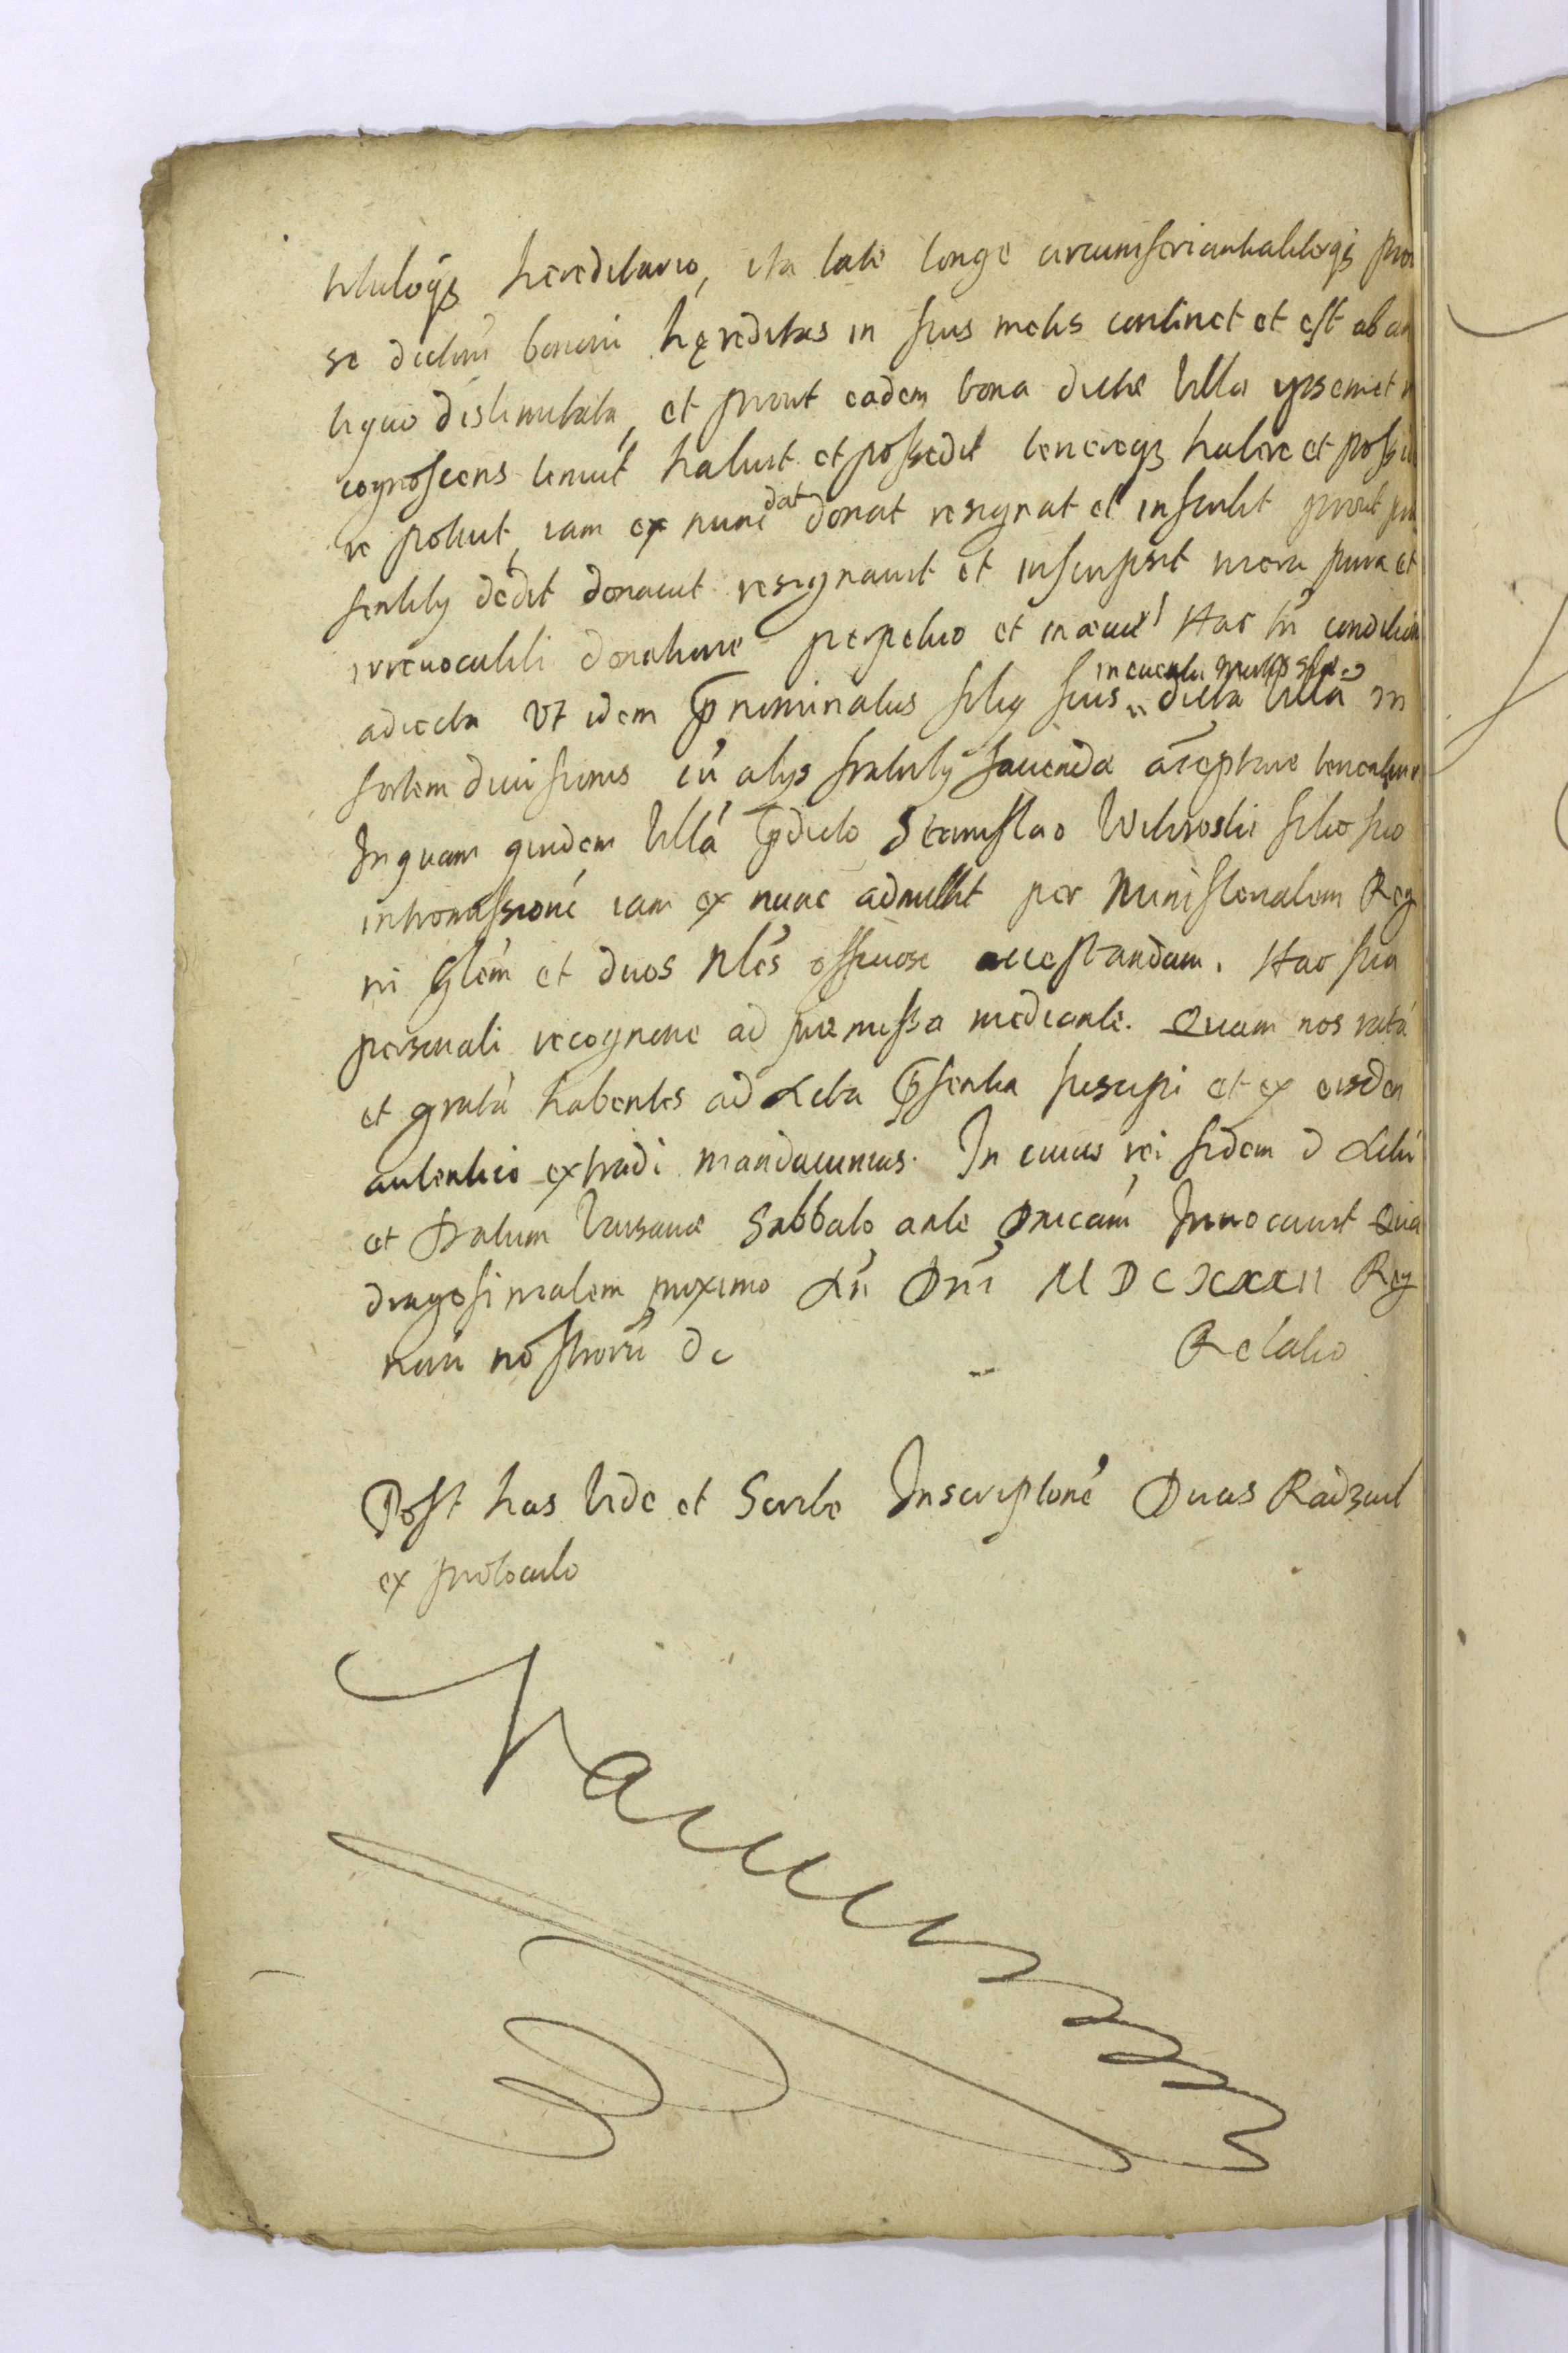 tituloq3 hereditario, ita late longe circumferentialiterq3 prou
se dictoru bonoru hęreditas in suis metis continet et est ab an
tiquo distinctata, et prout eadem bona dictae Villae ipsemet r
cognoscens tenuit habuit et possedit tenereq3 habere et possid
re potuit, iam ex nunc dat donat resignat et inscribit prout pra
sentib9 dedit donavit resignavit et inscripsit mera pura et
irrevocabili donatione perpetuo et in aevu Hac tn conditione
in eventu
adiecta Vt idem pnominatus fili9 suus dicta Villa in
sortem divisionis cu alys fratrib9 facienda acceptare teneatur
In quam quidem Villa pdicto Stanislao filio suo
intromissione iam ex nunc admittit per Ministerialem Reg
ni glem et duos Nles officiose attestandam. Hac sua
personali recognone ad praemissa mediante. Quam nos rata
et grata habentes ad Acta psentia suscipi et ex eisdem
autentico extradi mandavimus. In cuius rei fidem Actu
et Datum Varsaviae Sabbato ante Dnicam Invocavit Qua
dragesimalem proximo An Dni MDCXXXII Reg
noru nostroru Relatio
Post has Vide et Scribe Inscriptone Duas
ex protoculo